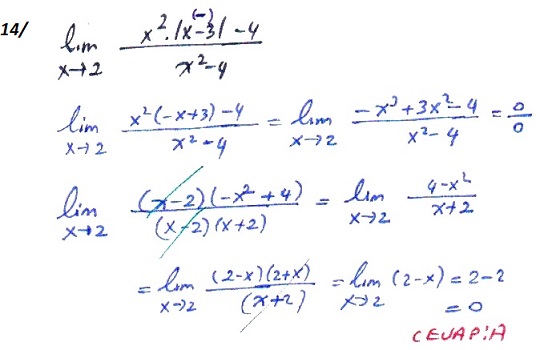 14/ lim x→2 (x².|x-3|(-) -4)/(x²-4)
lim x→2 (x²(-x+3)-4)/(x²-4) = lim x→2 (-x³+3x²-4)/(x²-4) = 0/0
lim x→2 ((x-2)(-x²+4))/((x-2)(x+2)) = lim x→2 (4-x²)/(x+2)
= lim x→2 ((2-x)(2+x))/(x+2) = lim x→2 (2-x) = 2-2
= 0
CEVAP:A